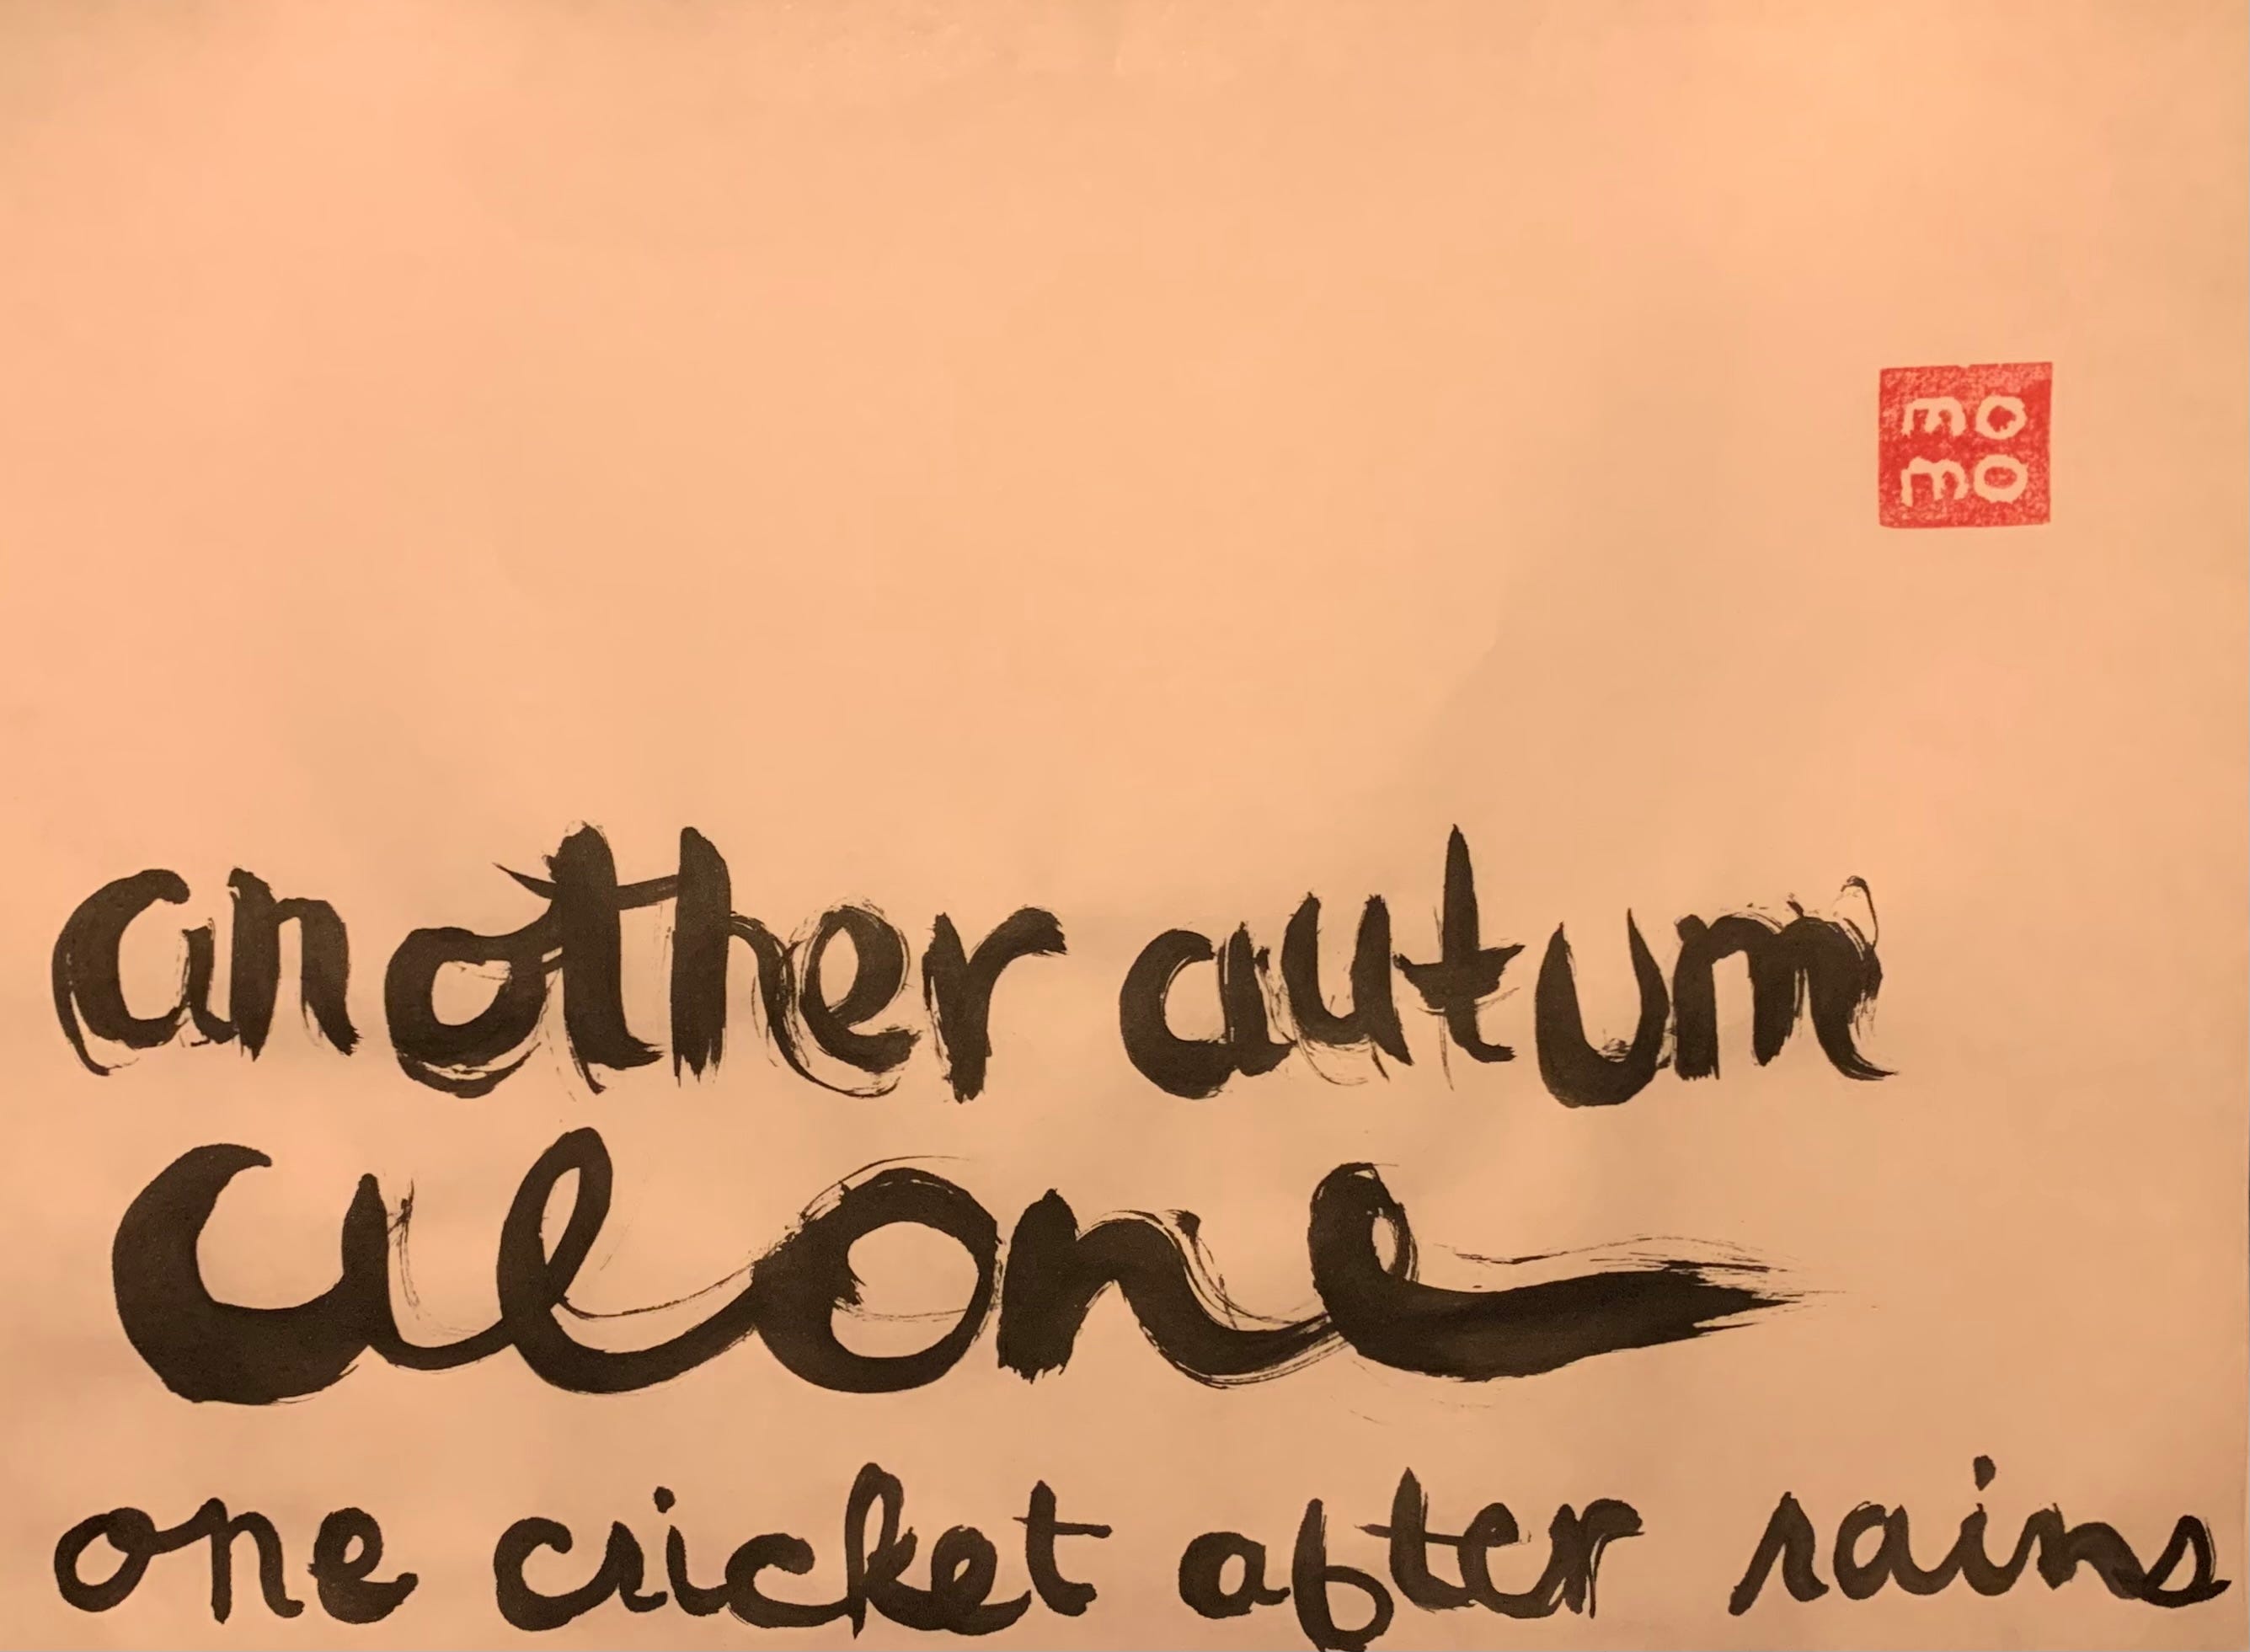 mo
mo
another autum
alone
one cricket after rains